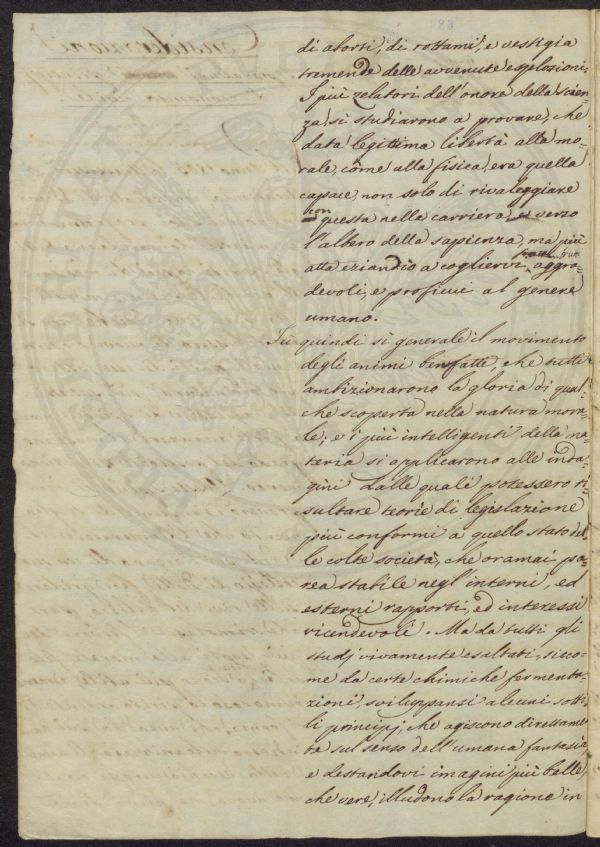 di aborti, di rottami, e vestigia
tremende delle avvenute esplosioni.
I più zelatori dell'onore della scien=
za, si studiarono a provare, che
data legittima libertà alla mo=
rale, come alla fisica, era quella
capace, non solo di rivaleggiare
con
questa nella carriera, verso
l'albero della sapienza, ma più
atta eziandio a cogliervi frutti aggra=
devoli, e proficui al genere
umano.
Fu quindi sì generale il movimento
degli animi benfatti, che tutti
ambizionarono la gloria di qual=
che scoperta nella natura mora=
le; e i più intelligenti della ma=
teria si applicarono alle inda=
gini dalle quali potessero ri=
sultare teorie di legislazione
più conformi a quello stato del=
le colte società, che oramai pa=
rea stabile negl'interni, ed
esterni rapporti, ed interessi
vicendevoli. Ma da tutti gli
studj vivamente esaltati, sicco=
me da certe chimiche fermenta=
zioni, sviluppansi alcuni sotti=
li principj, che agiscono direttamen=
te sul senso dell'umana fantasia,
e destandovi imagini più belle,
che vere, illudono la ragione in